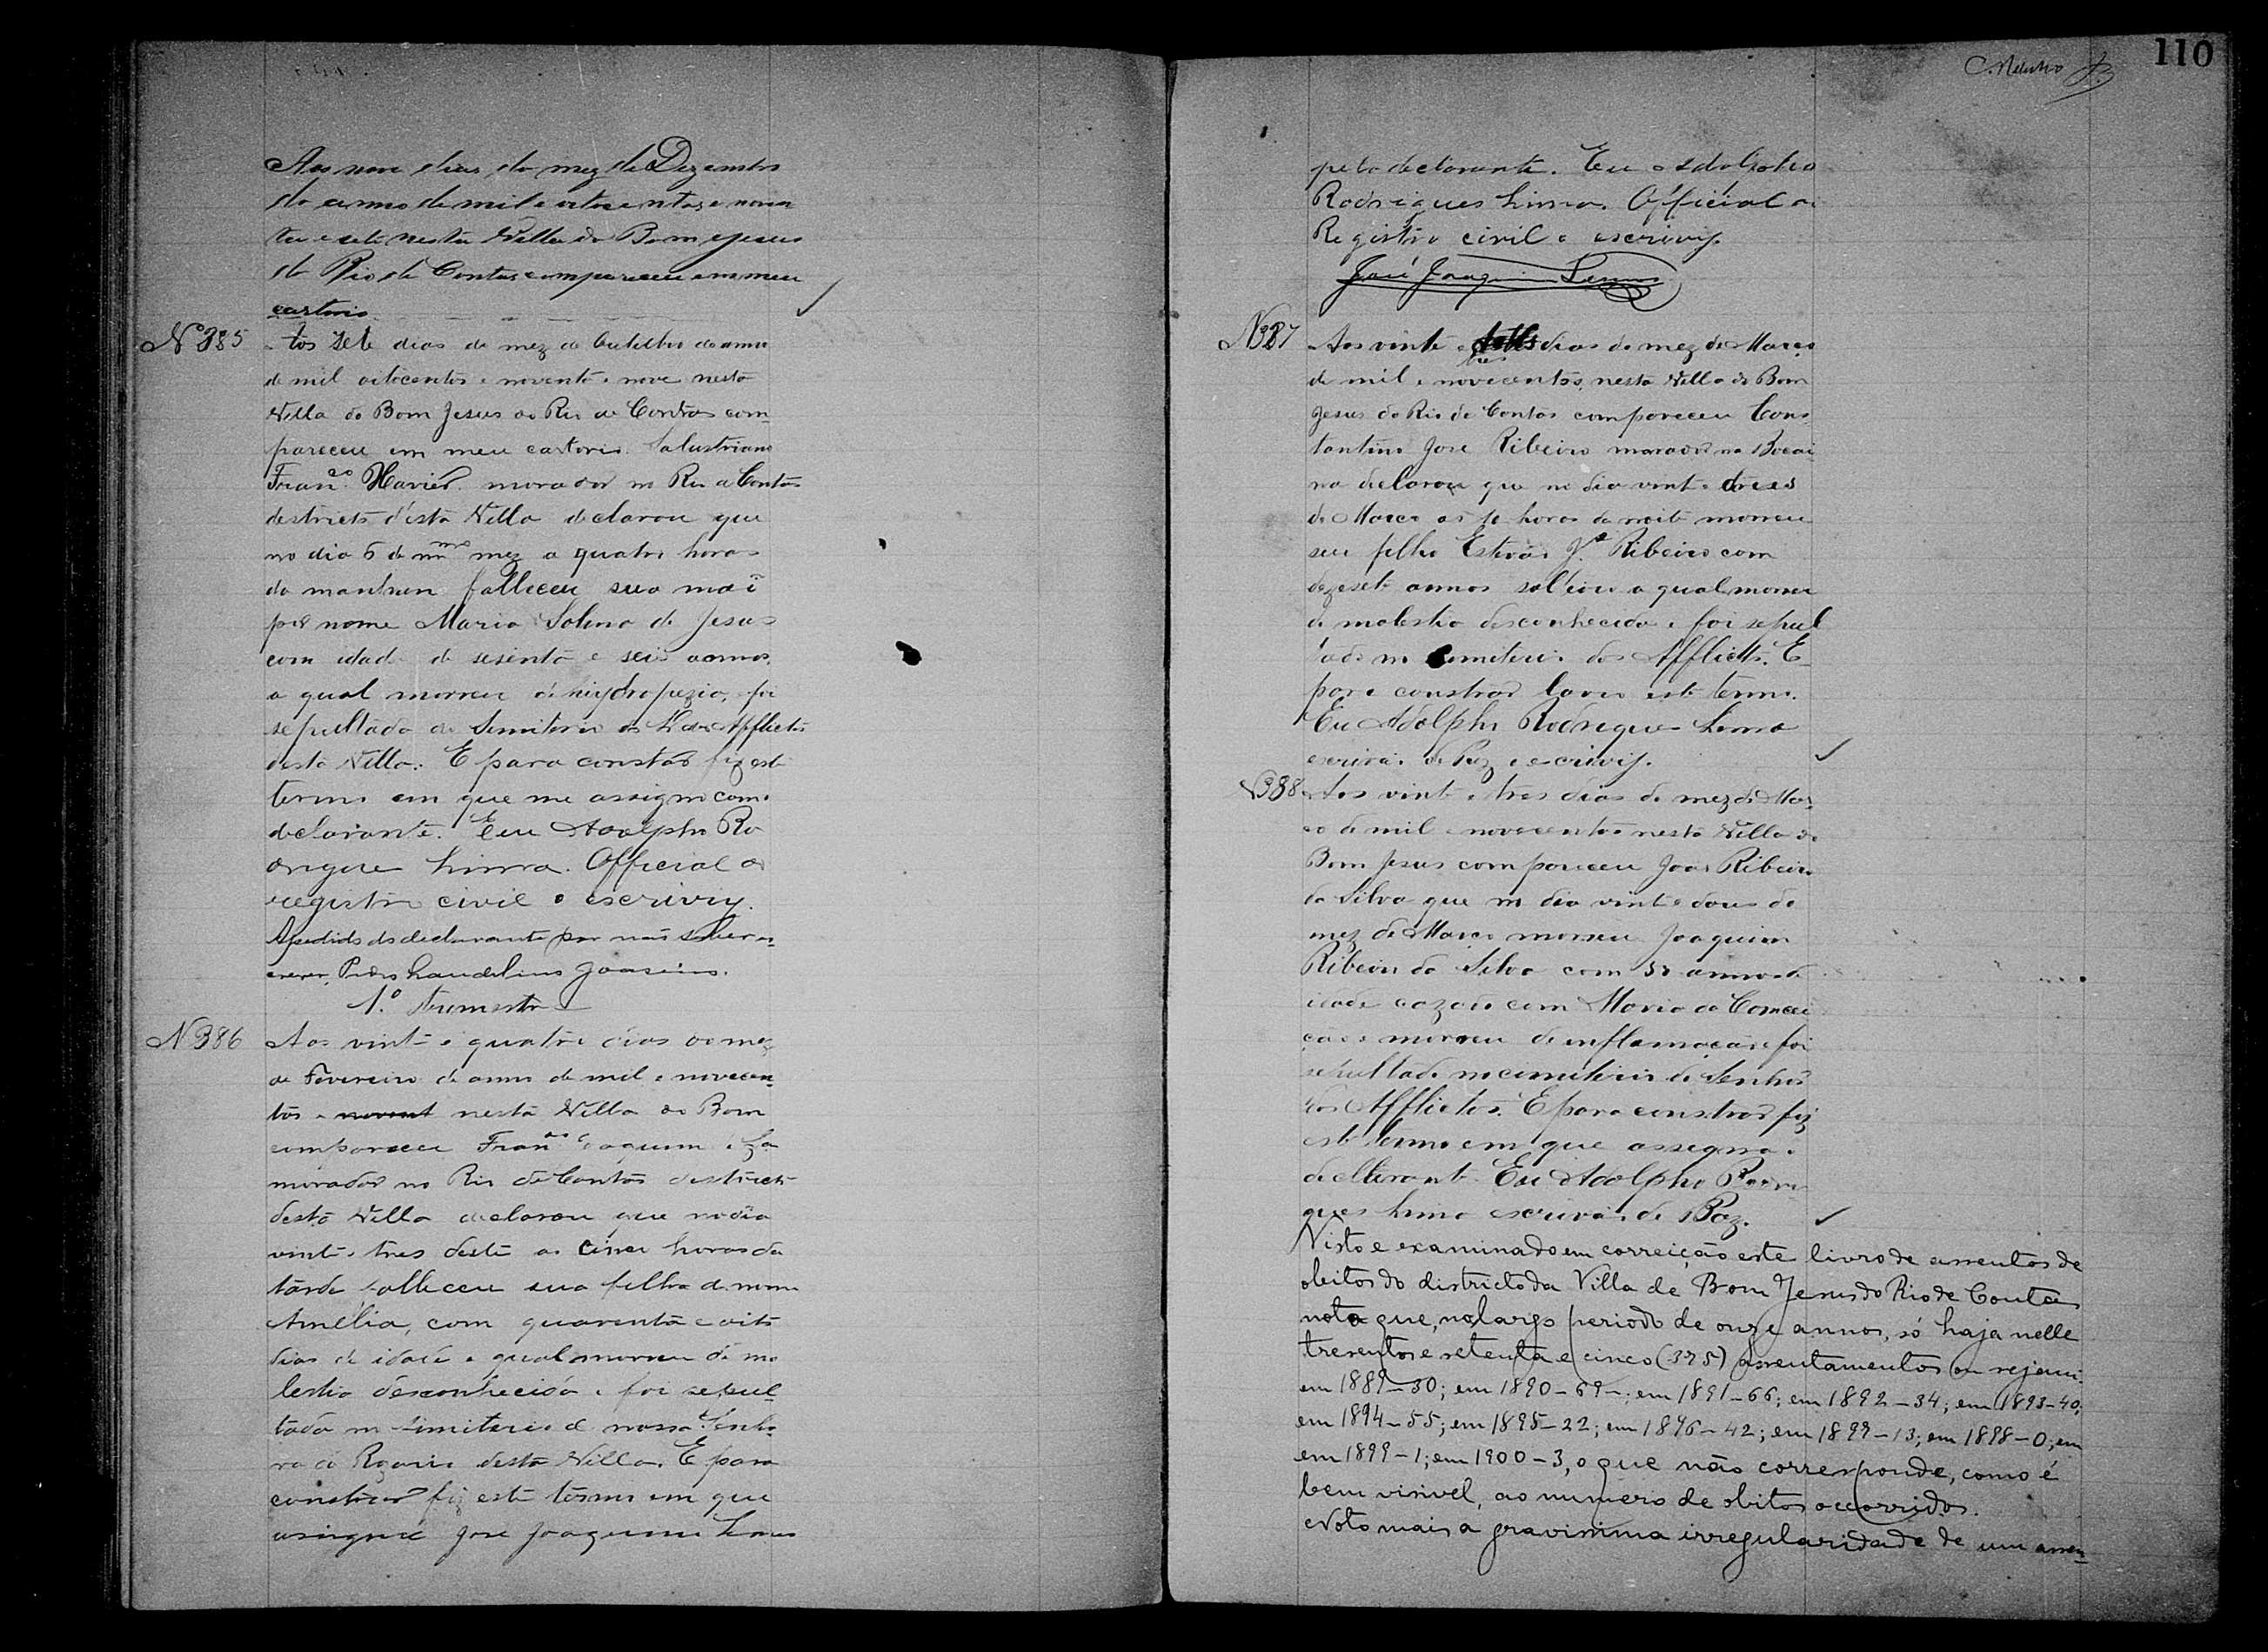 Aos nove dias do mez de Dezembro
do anno de mil e oitocentos e noven
ta e sete nesta Villa do Bom Jesus
do Rio de Contas compareceu em meu
cartorio
Nº 385
Aos sete dias do mez de Outubro do anno
de mil oitocentos e noventa e nove nesta
Villa do Bom Jesus do Rio de Contas com
pareceu em meu cartorio Salustriano
Franco Xavier morador no Rio de Contas
destricto d'esta Villa declarou que
no dia 5 do mmo mez a quatro horas
da manham falleceu sua mãi
por nome Maria de Jesus
com idade de sesenta e seis annos
a qual morreu de hiydropezia, foi
sepultada no Semiterio dos Afflictos
desta Villa. E para constar fiz este
termo em que me assigno com o
declarante. Eu Adolpho Ro
drigue Lima. Official do
registro civil o escriviy.
A pedido do declarante por não saber es
crever, Pedro Laudelino Joaseiro.
1º trimestre
Nº 386
Aos vinte e quatro dias do mez
de Fevereiro do anno de mil e novecen
tos e novent nesta Villa do Bom
compareceu Franco Joaquim
morador no Rio de Contas destricto
desta Villa declarou que no dia
vinte e tres deste as cinco horas da
tarde falleceu sua filha de nome
Amelia, com quarenta e oito
dias de idade a qual morreu de mo
lestia desconhecida e foi sepul
tada no Simiterio de nossa Senho
ra do Rozario desta Villa. E para
constrar fiz este termo em que
asigna José Joaquim Lemos
110
pelo declarante. Eu Adolpho
Rodrigues Lima. Official do
Registro civil o escriviy.
José Joaquim Lemos
Nº 387
Aos vinte e tres dias do mez de Março
de mil e novecentos, nesta Villa do Bom
Jesus do Rio de Contas compareceu Cons
tantino José Ribeiro morador na Bocai
na declarou que no dia vinte e tres
de Março as 10 horas da noite morreu
seu filho Estevão Je Ribeiro com
dezesete annos solteiro o qual morreu
de molestia desconhecida e foi sepul
tado no cemiterio dos Afflictos. E
para constrar lavro este termo.
Eu Adolpho Rodrigues Lima
escrivão de Paz o escriviy.
Nº 388
Aos vinte e tres dias do mez de Mar
ço de mil e novecentos nesta Villa do
Bom Jesus compareceu João Ribeiro
da Silva que no dia vinte e dous do
mez de Março morreu Joaquim
Ribeiro da Silva com annos de
idade cazado com Maria da Concei
ção e morreu de inflamação e foi
sepultado no cimiterio do Senhor
dos Afflictos. E para constrar fiz
este termo em que assigna o
declarante. Eu Adolpho Rodri
gues Lima escrivão de Paz.
Visto e examinado em correição este livro de assentos de
obitos do districto da Villa de Bom Jesus do Rio de Contas
noto que, no largo periodo de onze annos, só haja nelle
tresentos e setenta e cinco (375) assentamentos ou sejam:
em 1889 - 30; em 1890 - 69 -; em 1891 - 66; em 1892 - 34; em 1893 - 40;
em 1894 - 55; em 1895 - 22; em 1896 - 42; em 1897 - 13; em 1898 - 0; em
em 1899 - 1; em 1900 - 3, o que não corresponde, como é
bem visivel, ao numero de obitos occorridos.
Noto mais a gravissima irregularidade de um assen